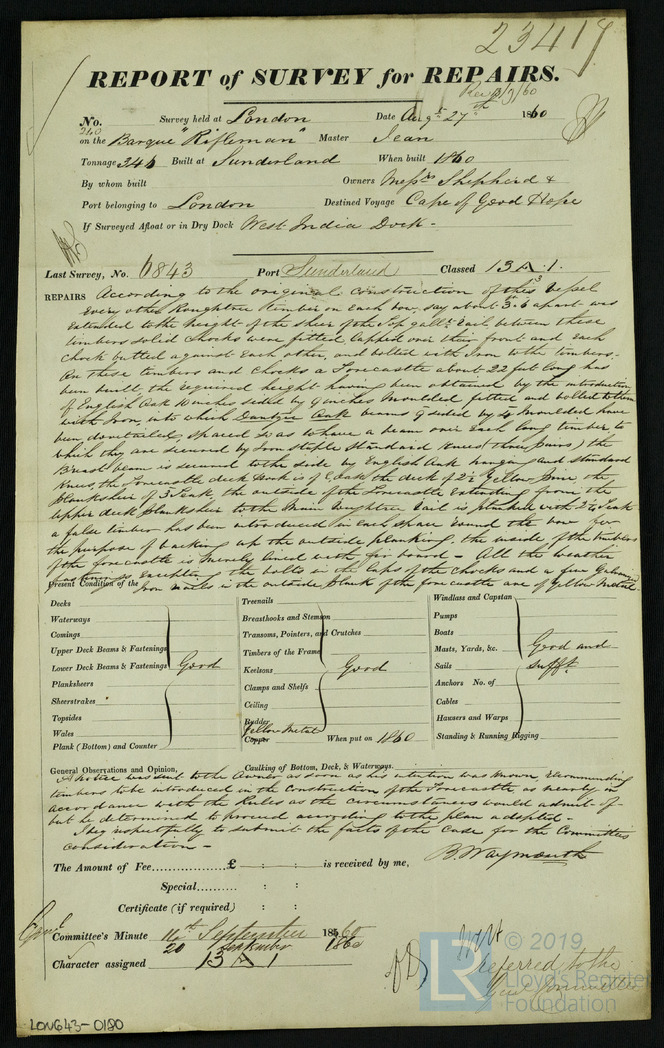 23417
REPORT of SURVEY for REPAIRS.
Rec 3/9/60
No. Survey held at London Date Augst 27th 1860
240
on the Barque "Rifleman" Master Jean
Tonnage 346 Built at Sunderland When built 1860
By whom built Owners Messrs Shepherd &
Port belonging to London Destined Voyage Cape of Good Hope
If Surveyed Afloat or in Dry Dock West India Dock -
Last Survey, No. 6843 Port Sunderland Classed 13 A. 1.
REPAIRS According to the original construction of this Vessel
Every other Roughtree timber on each bow, say about 3.6 apart was
Extended to the height of the sheer of the Top gallt Rail, between these
timbers solid chocks were fitted lapped over their front and each
chock butted against Each other, and bolted with Iron to the timbers.
On these timbers and chocks a Forecastle about 22 feet long has
been built the required height having been obtained by the introduction
of English Oak 10 inches sided by 9 inches moulded fitted and bolted to them
with Iron, into which Dantzic Oak beams 9 sided by 4 moulded have
been dovetailed, spaced so as to have a beam over Each long timber to
which they are secured by Iron staple Standard Knees (three pairs) the
Breast beam is secured to the side by English Oak hanging and standard
Knees, the Forecastle deck is of the deck of 2½ Yellow Pine the
planksheer of 3 Teak, the outside of the Forecastle Extending from the
upper deck planksheer to the Main Roughtree Rail is planked with 2¼ Teak
a false timber has been introduced in each space round the bow for
the purpose of backing up the outside planking, the inside of the timbers
of the forecastle is merely lined with fir board - All the weather
fastenings Excepting the bolts in the laps of the chocks and a few Galvanized
Iron nails in the outside plank of the forecastle are of Yellow Metal.
Present Condition of the
Decks
Waterways
Comings
Upper Deck Beams & Fastenings
Lower Deck Beams & Fastenings Good
Planksheers
Sheerstrakes
Topsides
Wales
Plank (Bottom) and Counter
Treenails
Breasthooks and Stemson
Transoms, Pointers, and Crutches
Timbers of the Frame
Keelsons Good
Clamps and Shelfs
Ceiling
Rudder
Yellow Metal
Copper When put on 1860
Windlass and Capstan
Pumps
Boats
Masts, Yards, &c. Good and
Sails sufft.
Anchors No. of
Cables
Hausers and Warps
Standing & Running Rigging
General Observations and Opinion, Caulking of Bottom, Deck, & Waterways.
A notice was sent to the Owner as soon as his intention was known, recommending
timbers to be introduced in the Construction of the Forecastle as nearly in
accordance with the Rules as the circumstances would admit of
but he determined to proceed according to the plan adopted -
I beg respectfully to submit the facts of the case for the Committee's
consideration -
B. Waymouth
The Amount of Fee £ : : is received by me,
Special : :
Certificate (if required) : :
Committee's Minute 14th September 1860
20 September 1860
Character assigned 13 A 1
referred to the
Committee
© 2019
LR Lloyd's Register
Foundation
LON643-0180